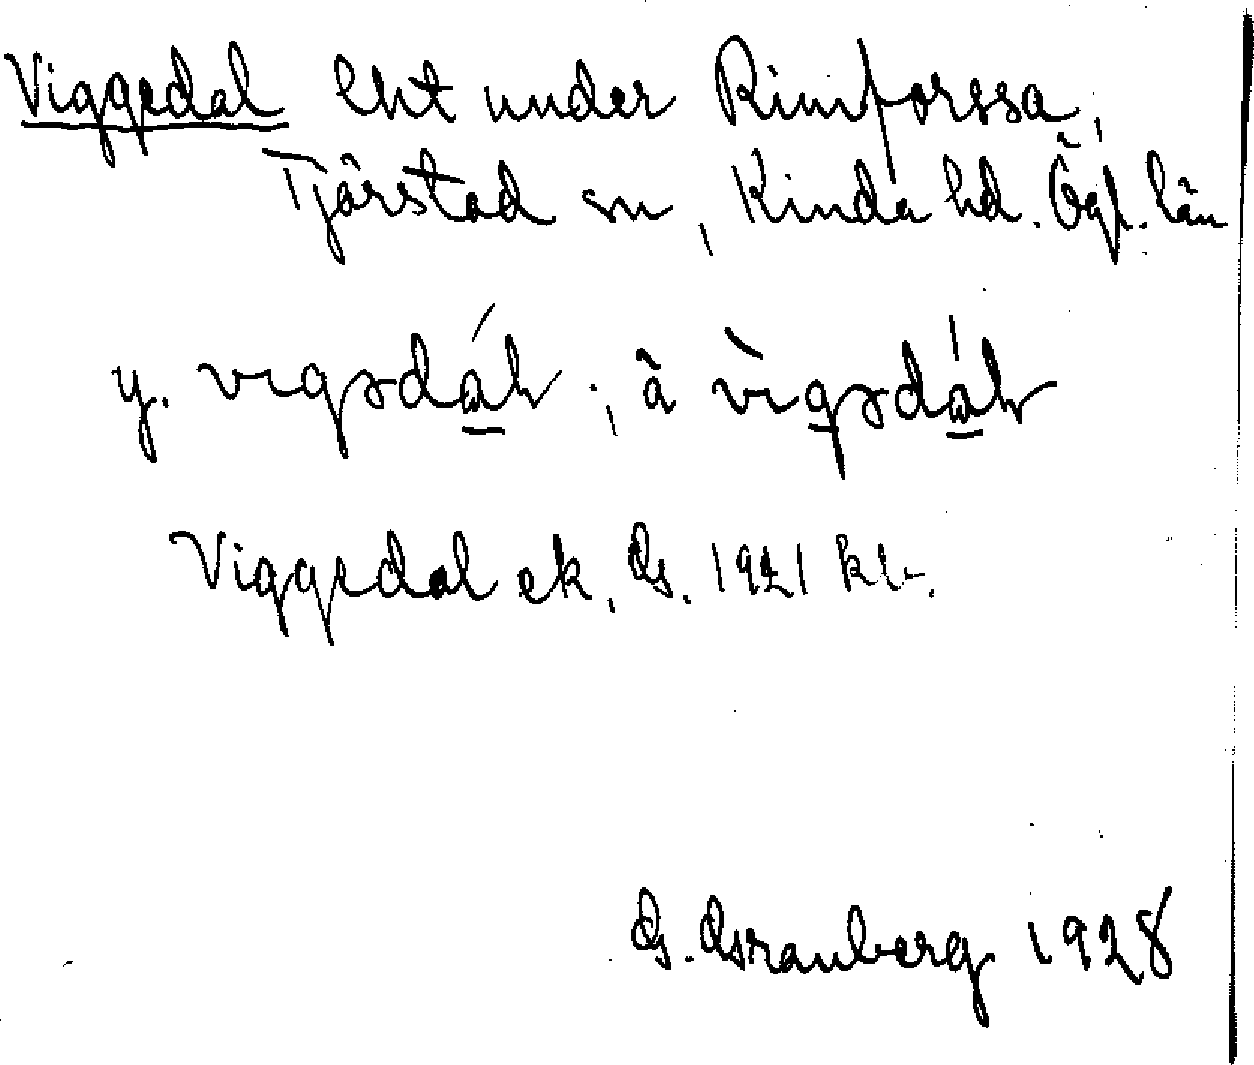 Viggedal lht under Rimforssa,
Tjärstad sn, Kinda hd. Ögl. län
y. vigədáḷ; ä vìgədáḷ
Viggedal ek. G. 1921 kbr.
G. Granberg 1928